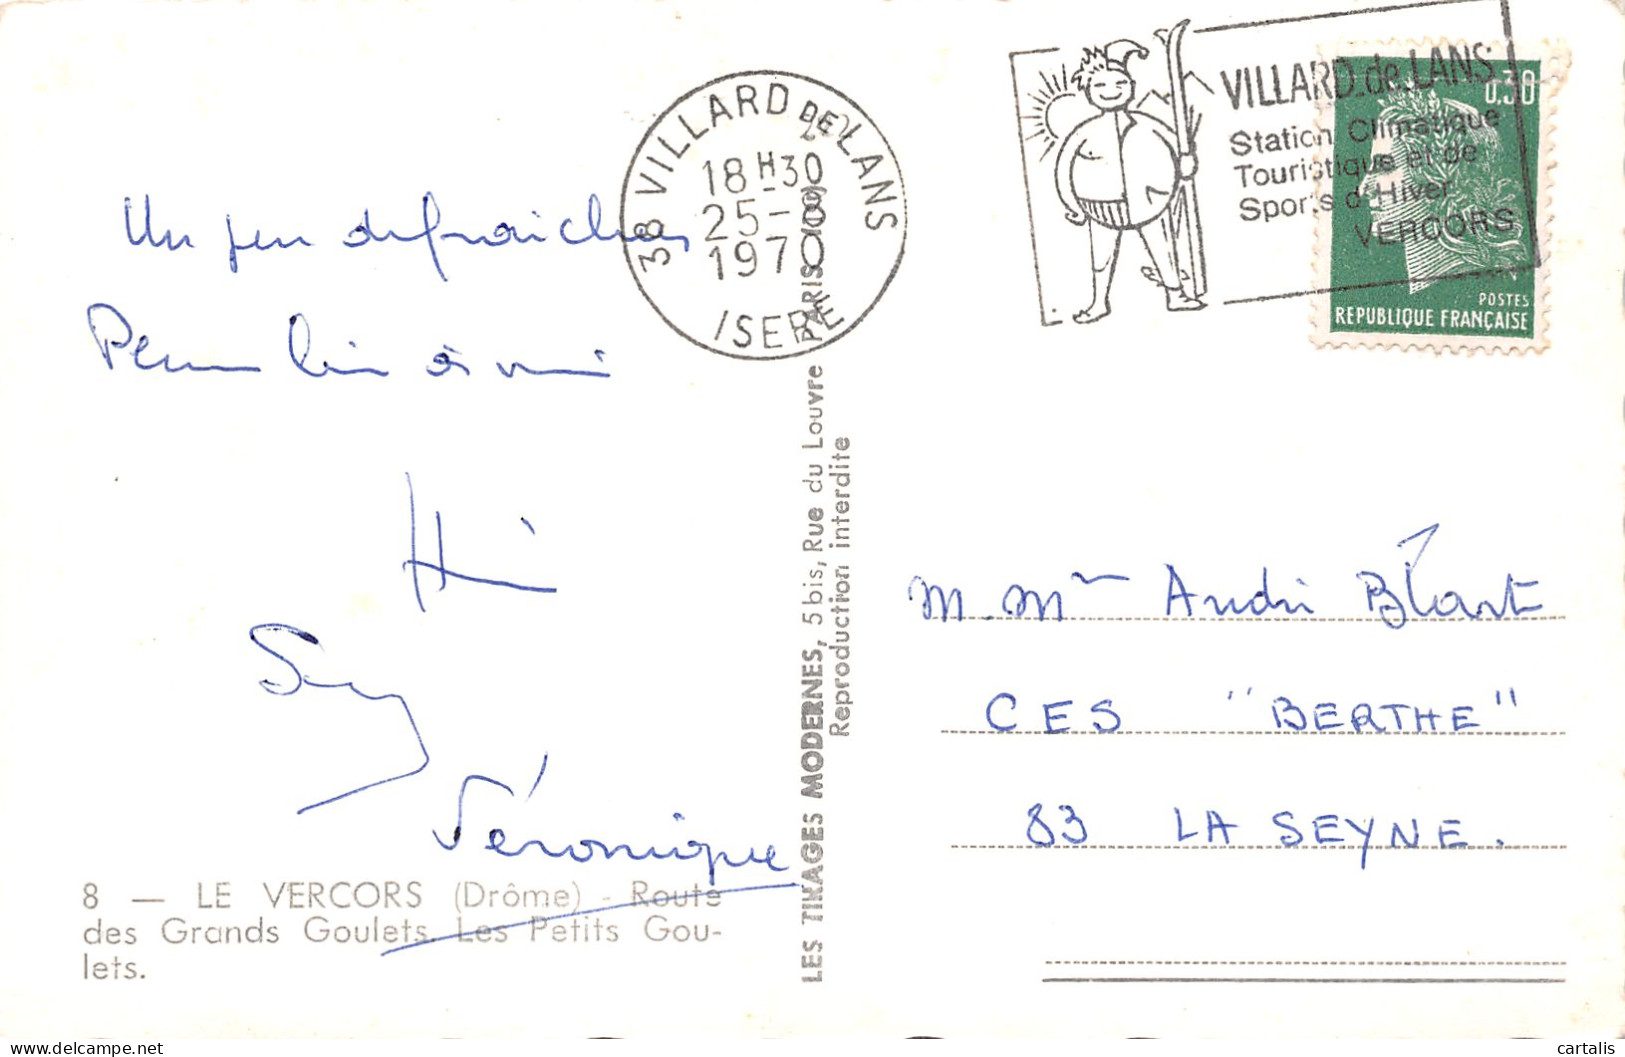 38 VILLARD DE LANS
18H30
25-
1970
ISERE
VILLARD de LANS
Station Climatique
Touristique et de
Sports d'Hiver
VERCORS
0,30
POSTES
REPUBLIQUE FRANÇAISE
Un peu de fraicheur
LES TIRAGES MODERNES, 5 bis, Rue du Louvre PARIS
Reproduction interdite
M. Mme André Blart
CES "BERTHE"
83 LA SEYNE.
Véronique
8 — LE VERCORS (Drôme) - Route
des Grands Goulets. Les Petits Gou-
lets.
cartalis